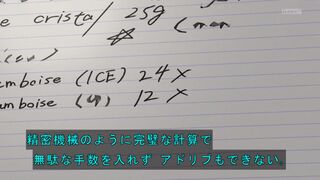 crista/ 25g
amboise (ICE) 24x
amboise (い) 12x
精密機械のように完璧な計算で
無駄な手数を入れず アドリブもできない。